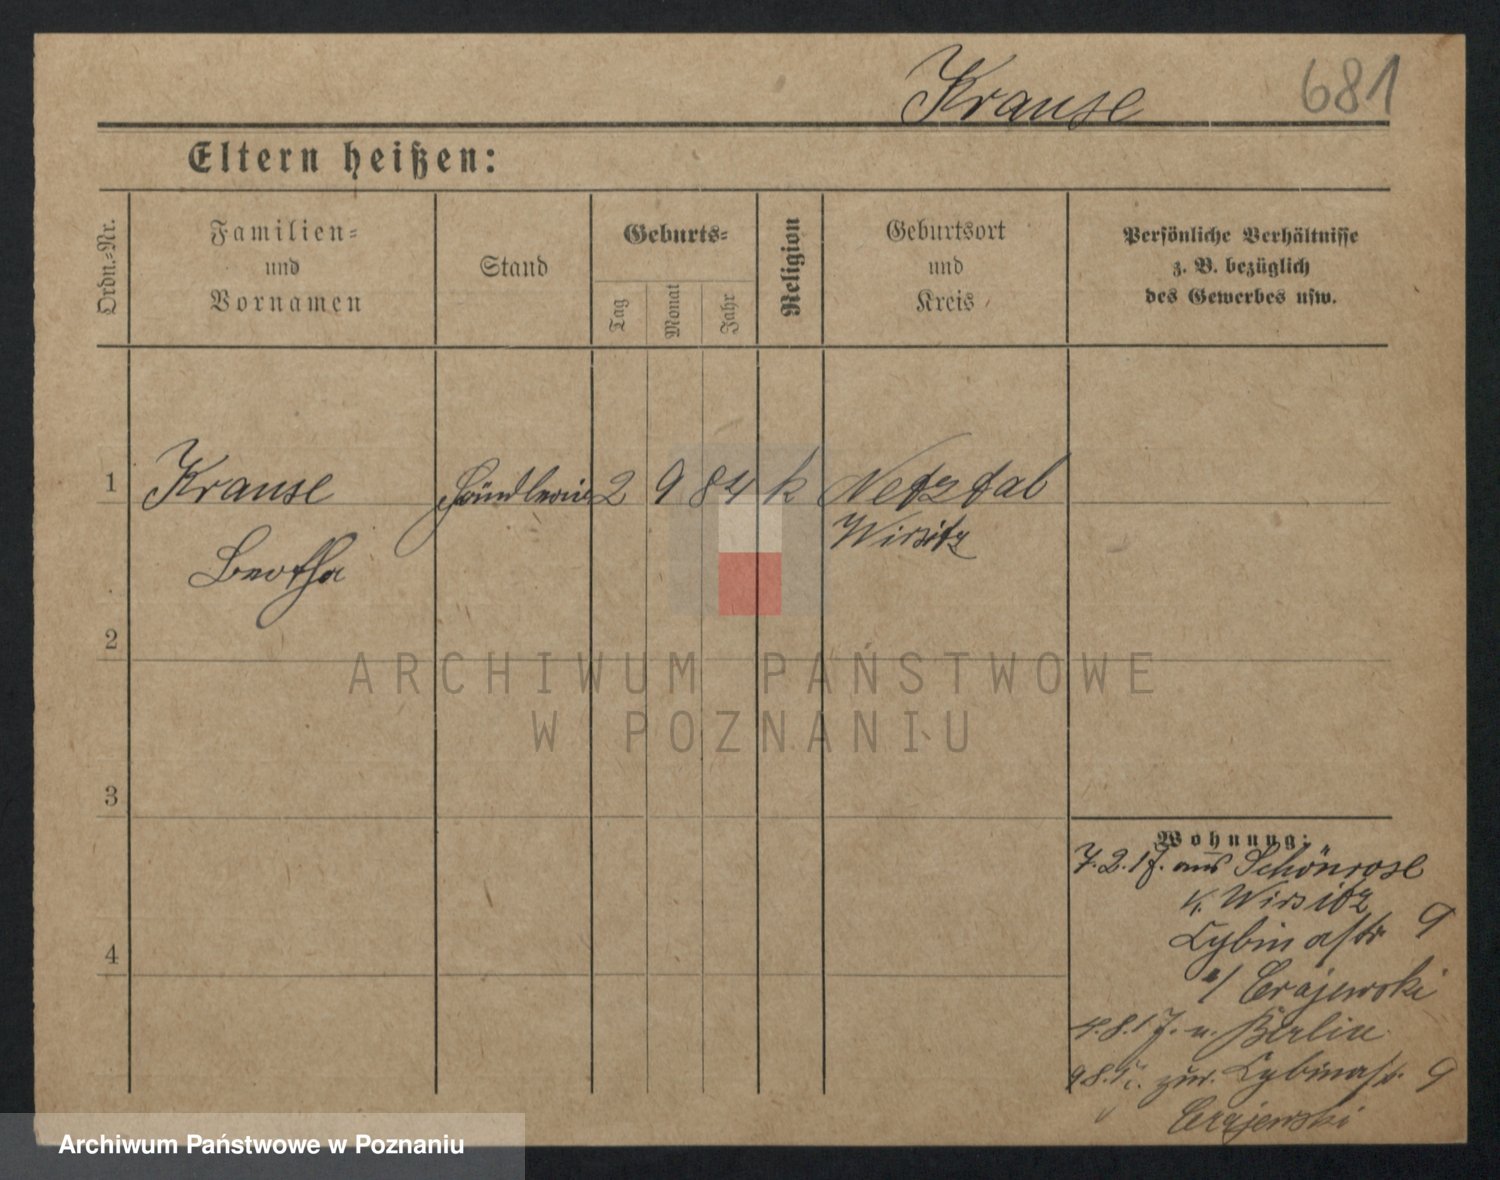 Krause 681
Eltern heißen:
Ordn.-Nr.
Familien-
und
Vornamen
Stand
Geburts-
Tag
Monat
Jahr
Religion
Geburtsort
und
Kreis
Persönliche Verhältnisse
z. B. bezüglich
des Gewerbes usw.
1 Krause Händlerin 2 9 84 k Netztal
Wirsitz
Bertha
2
ARCHIWUM PAŃSTWOWE
W POZNANIU
3
Wohnung:
7.2.17. aus Schönrose
K. Wirsitz
Cybinastr 9
4
b/ Crajewski
4.8.17. n. Berlin
9.8.17. zur. Cybinastr. 9
Crajewski
Archiwum Państwowe w Poznaniu